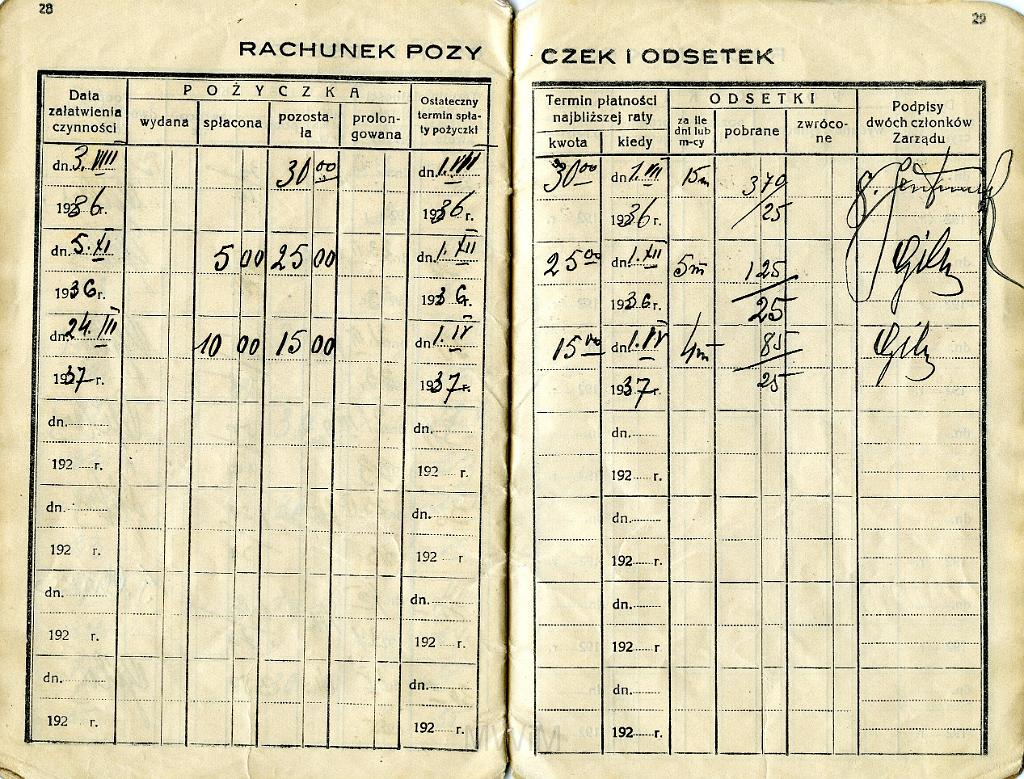 28
29
RACHUNEK POZY CZEK I ODSETEK
Data załatwienia czynności
POŻYCZKA
wydana
spłacona
pozosta-ła
prolon-gowana
Ostateczny termin spła-ty pożyczki
Termin płatności najbliższej raty
kwota
kiedy
ODSETKI
za ile dni lub m-cy
pobrane
zwróco-ne
Podpisy dwóch członków Zarządu
dn. 3. VIII 30 00 dn. 1. VIII 30 00 dn. 1. VIII 15 m 3 70
1936 r. 1936 r. 1936 r. 25
dn. 5. XI 5 00 25 00 dn. 1. XII 25 00 dn. 1. XII 5 m 1 25
1936 r. 1936 r. 1936 r. 25
dn. 24. III 10 00 15 00 dn. 1. IV 15 00 dn. 1. IV 4 m 85
1937 r. 1937 r. 1937 r. 25
dn. dn. dn.
192 r. 192 r. 192 r.
dn. dn. dn.
192 r. 192 r. 192 r.
dn. dn. dn.
192 r. 192 r. 192 r.
dn. dn. dn.
192 r. 192 r. 192 r.